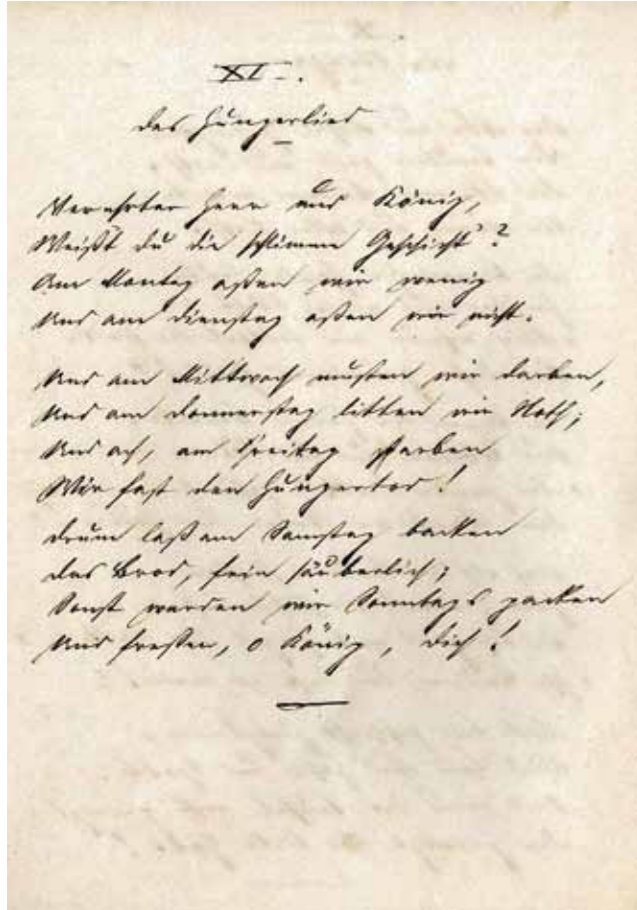 XI.
Das Hungerlied
Verehrter Herr und König,
Weißt du die schlimme Geschicht'?
Am Montag aßen wir wenig
Und am Dienstag aßen wir nicht.
Und am Mittwoch mußten wir darben,
Und am Donnerstag litten wir Noth;
Und ach, am Freitag starben
Wir fast den Hungertod!
Drum laß am Samstag backen
Das Brod, fein säuberlich;
Sonst werden wir Sonntags packen
Und fressen, o König, dich!